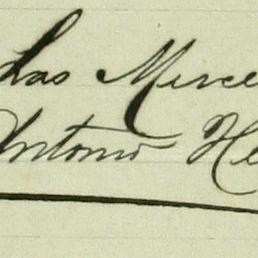 Las Merce
Antonio He